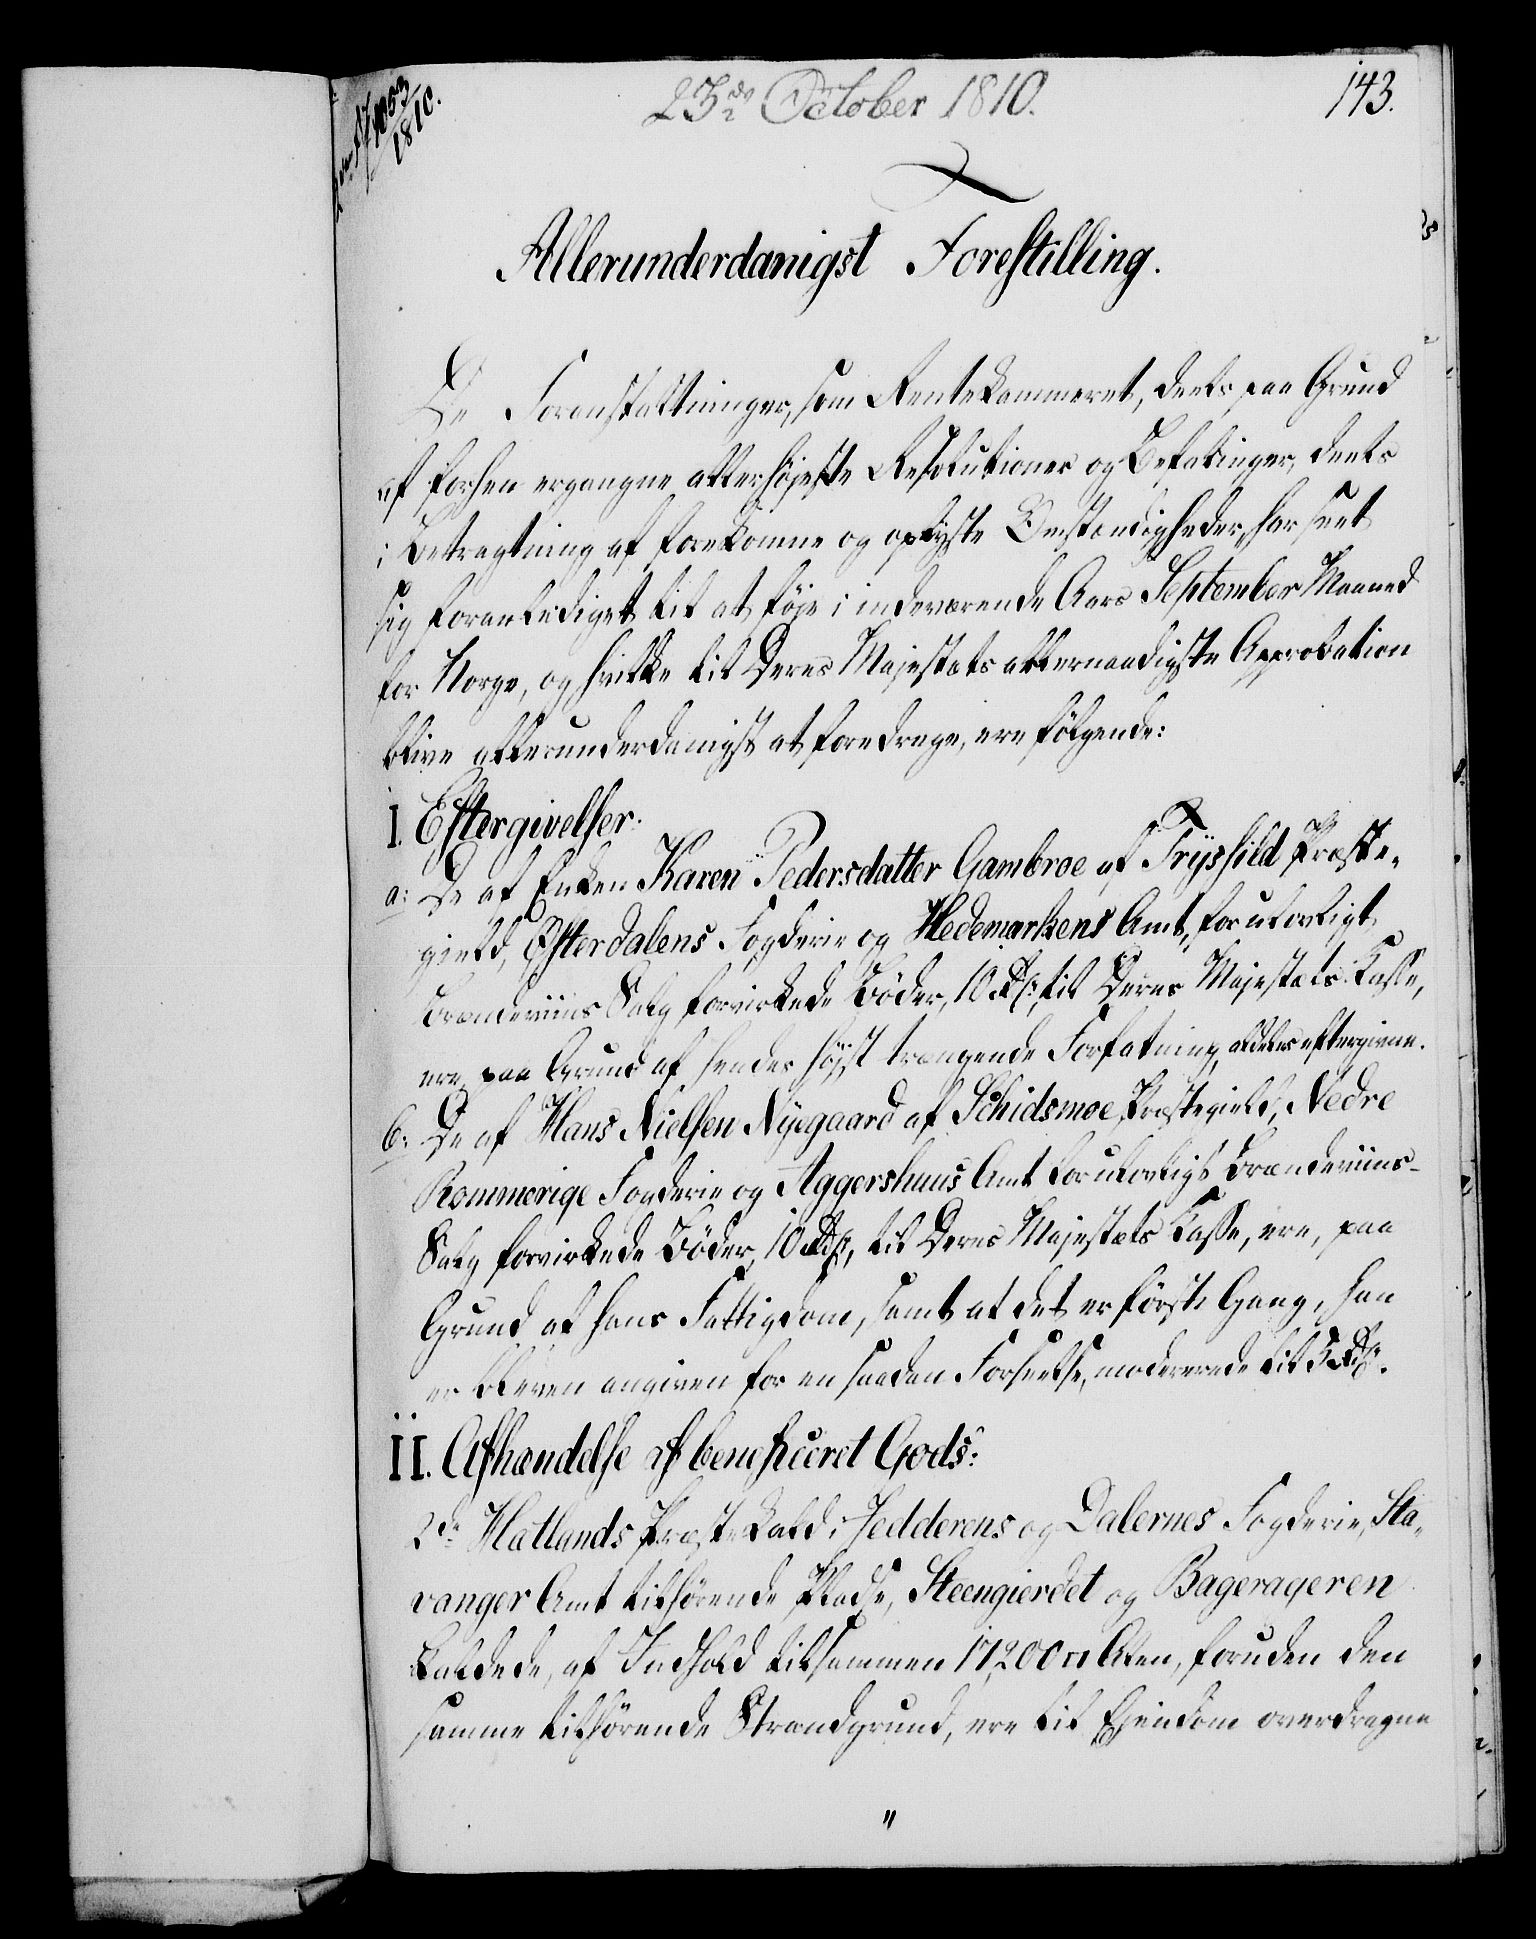 23de October 1810.
143.
1053
1810.
Allerunderdanigst Forestilling.
De Foranstaltninger, som Rentekammeret, deels paa Grund
af forhen ergangne allerhøjeste Resolutioner og Befalinger, deels
i Betragtning af forekomne og oplyste Omstændigheder, har seet
sig foranlediget til at føje i indeværende Aars September Maaned
for Norge, og hvilke til Deres Majestæts allernaadigste Approbation
blive allerunderdanigst at foredrage, ere følgende:
I. Eftergivelser:
a: De af Enken Karen Pedersdatter Gambroe af Trysfild Præste-
gield, Østerdalens Fogderie og Hedemarkens Amt, for ulovligt
Brændeviins Salg forvirkede Bøder, 10 Rdlr, til Deres Majestæts Kasse,
ere, paa Grund af hendes højst trængende Forfatning, aldeles eftergivne.
b: De af Hans Nielsen Nyegaard af Schidsmoe Præstegield, Nedre
Rommerige Fogderie og Aggershuus Amt for ulovligt Brændeviins-
Salg forvirkede Bøder, 10 Rdlr, til Deres Majestæts Kasse, ere, paa
Grund af hans Fattigdom, samt at det er første Gang, han
er bleven angiven for en saadan Forseelse, modererede til 5 Rdlr.
II. Afhændelse af beneficeret Gods:
2de Hatlands Præstekald i Jedderens og Dalernes Fogderie, Sta-
vanger Amt tilhørende Pladse, Steengierdet og Bagerageren
kaldede, af Indhold tilsammen 17,200 □ Alen, foruden den
samme tilhørende Strandgrund, ere til Ejendom overdragne
"